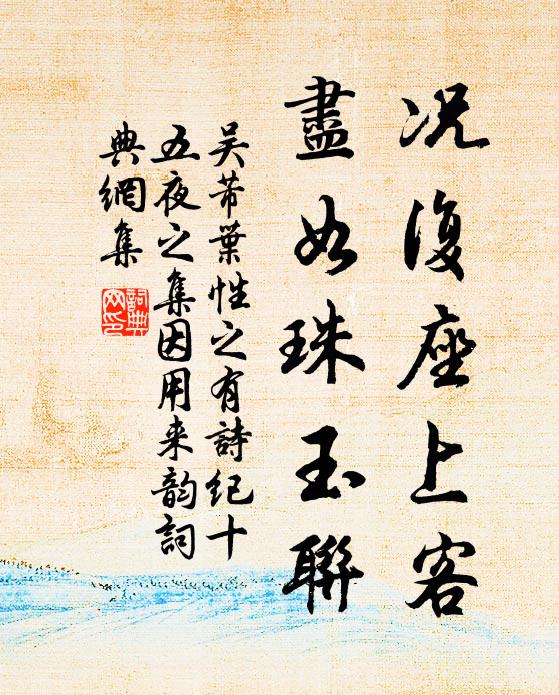 况復座上客
盡如珠玉聯
吴芾葉性之有詩紀十
五夜之集因用来韵詞
典網集
詞典網印